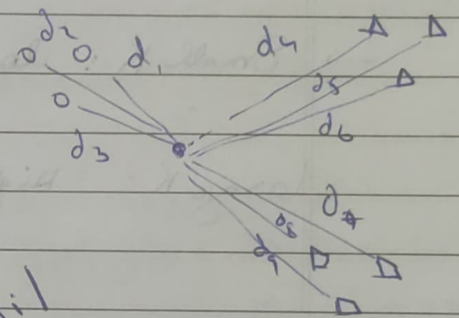 d2 d1 d4
d5
d6
d3
d8
d9